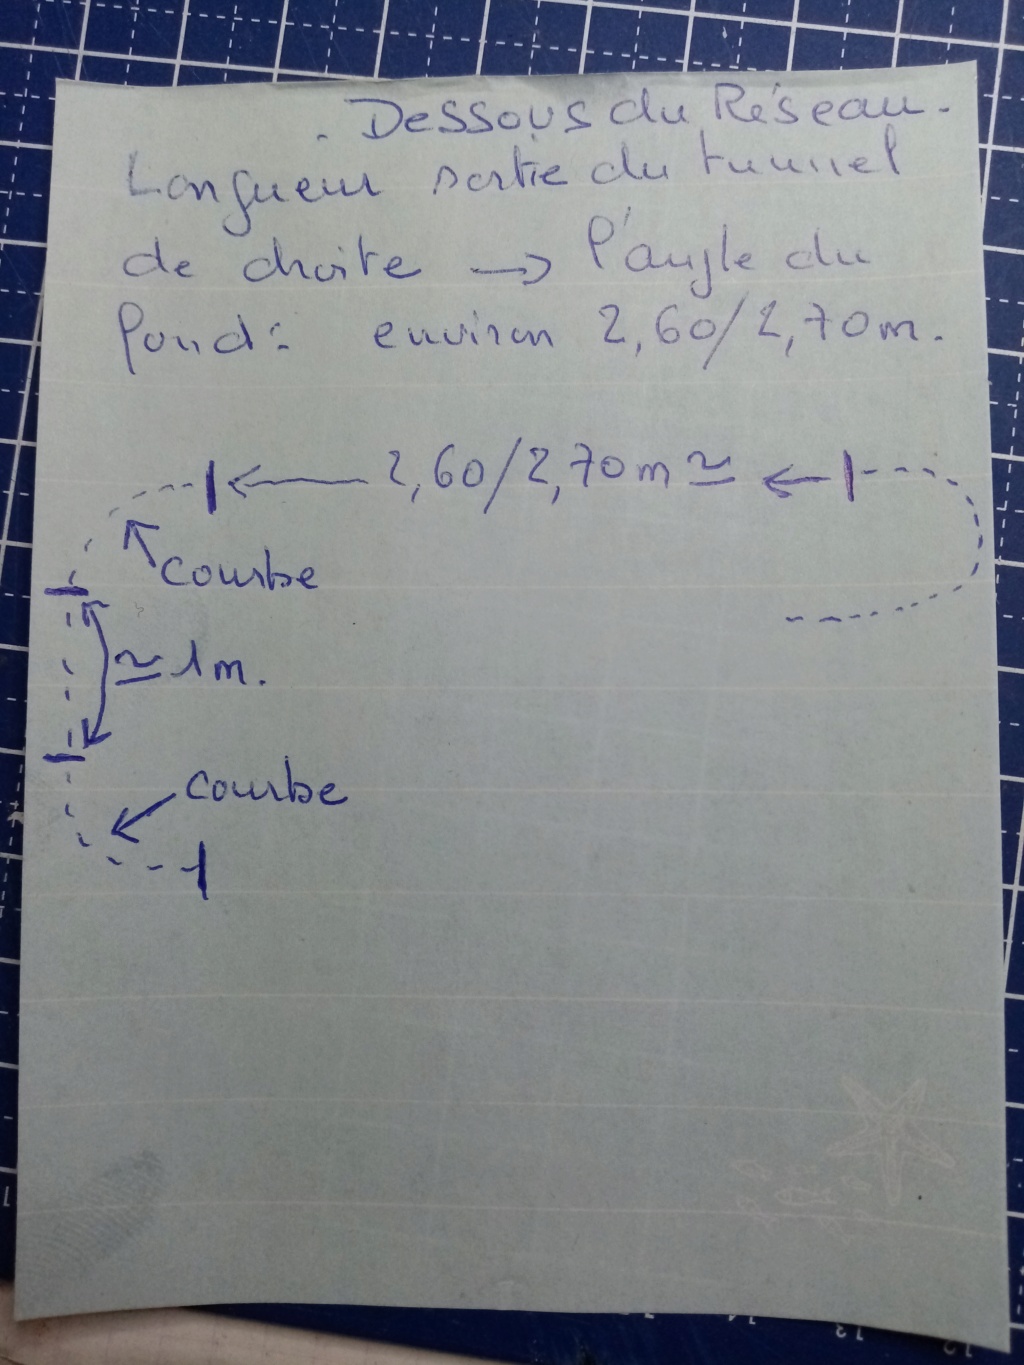 . Dessous du Réseau.
Longueur sortie du tunnel
de droite → l'angle du
fond : environ 2,60/2,70m.
← 2,60/2,70m ≃ ←
courbe
≃ 1m.
courbe